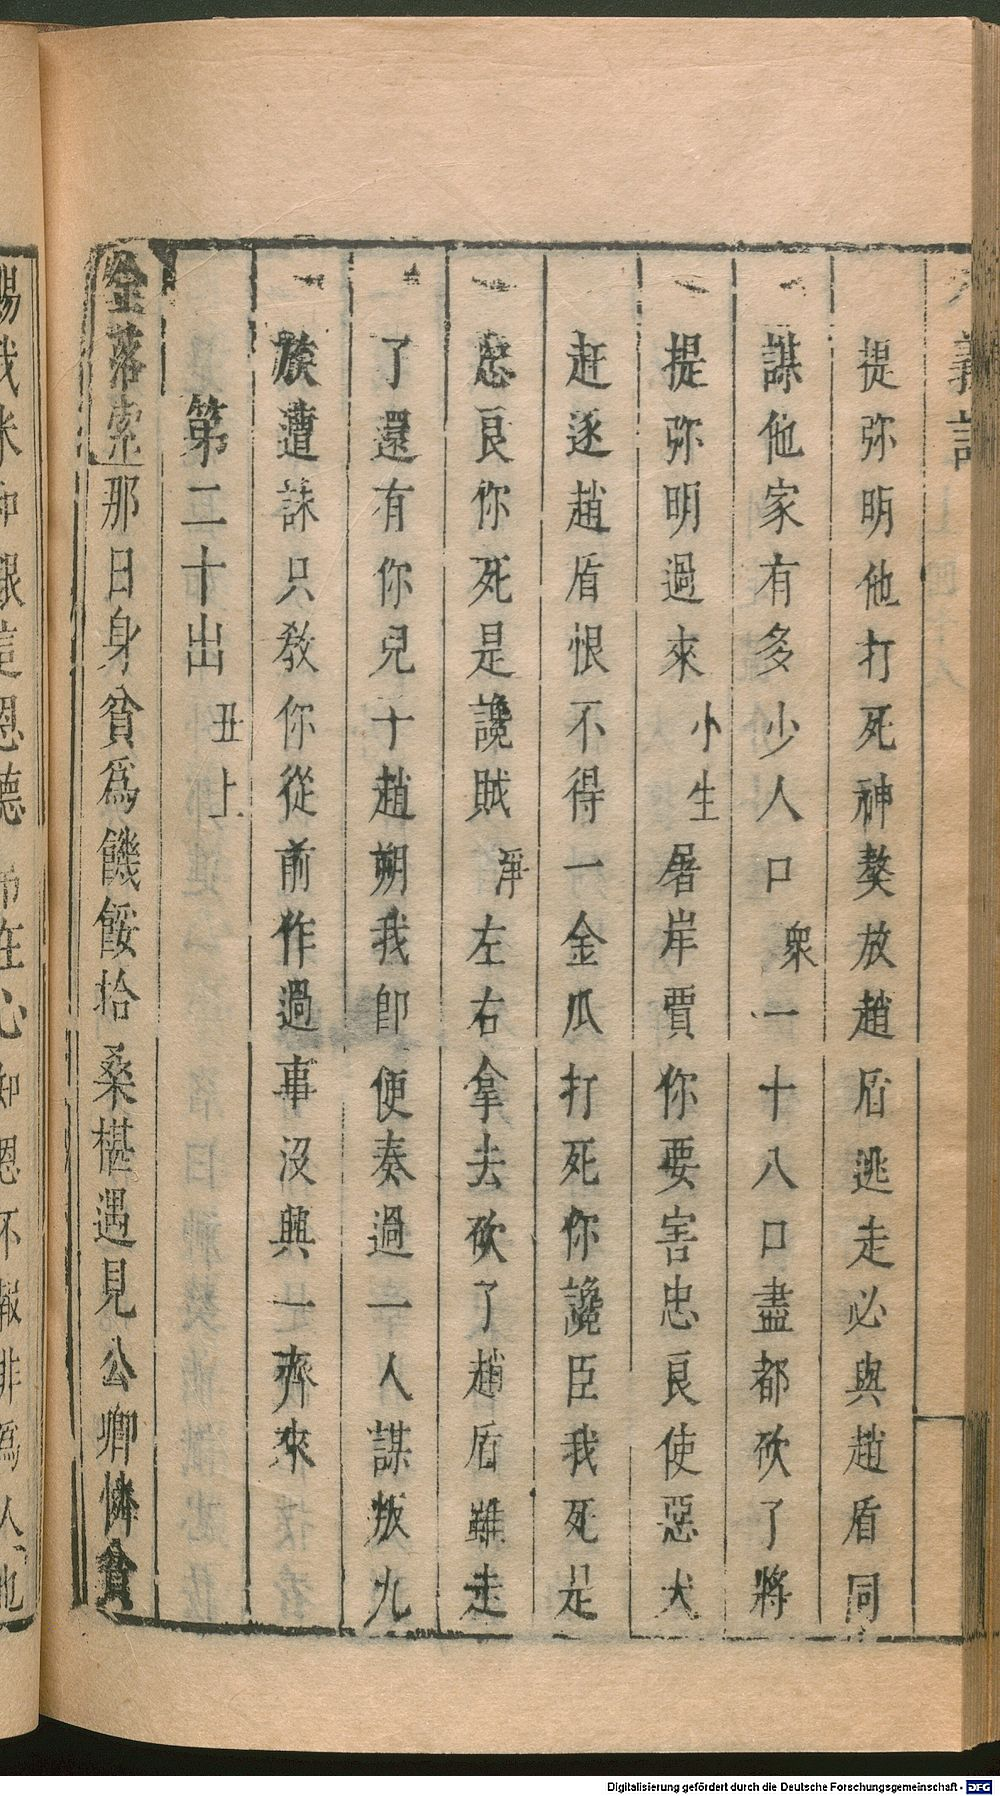 義記
提弥明他打死神獒放趙盾逃走必與趙盾同
謀他家有多少人口衆一十八口盡都砍了將
提弥明過來小生屠岸賈你要害忠良使惡犬
赶逐趙盾恨不得一金瓜打死你讒臣我死是
忠良你死是讒賊淨左右拿去砍了趙盾雖走
了還有你兒子趙朔我即便奏過一人謀叛九
族遭誅只教你從前作過事沒興一齊來
第二十出丑上
金落索那日身貧爲饑餒拾桑椹遇見公卿憐貧
賜我米和銀這恩德常在心知恩不報非爲人也
Digitalisierung gefördert durch die Deutsche Forschungsgemeinschaft - DFG